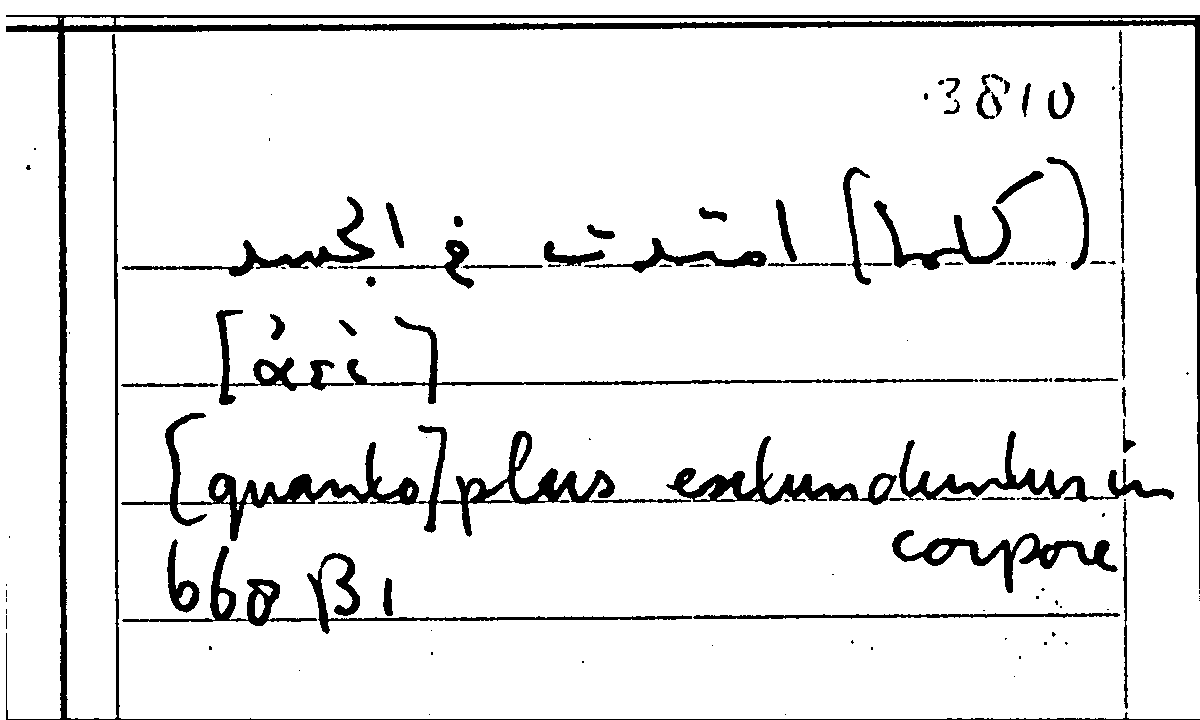 3810
(كلما) امتدت في الجسد
[ἀεὶ]
[quanto] plus extenduntur in
corpore
668 β 1